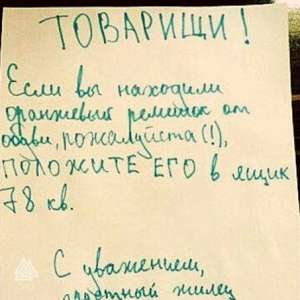 ТОВАРИЩИ!
Если вы находили
оранжевый ремешок от
обуви, пожалуйста(!),
ПОЛОЖИТЕ ЕГО в ящик
78 кв.
С уважением,
жилец